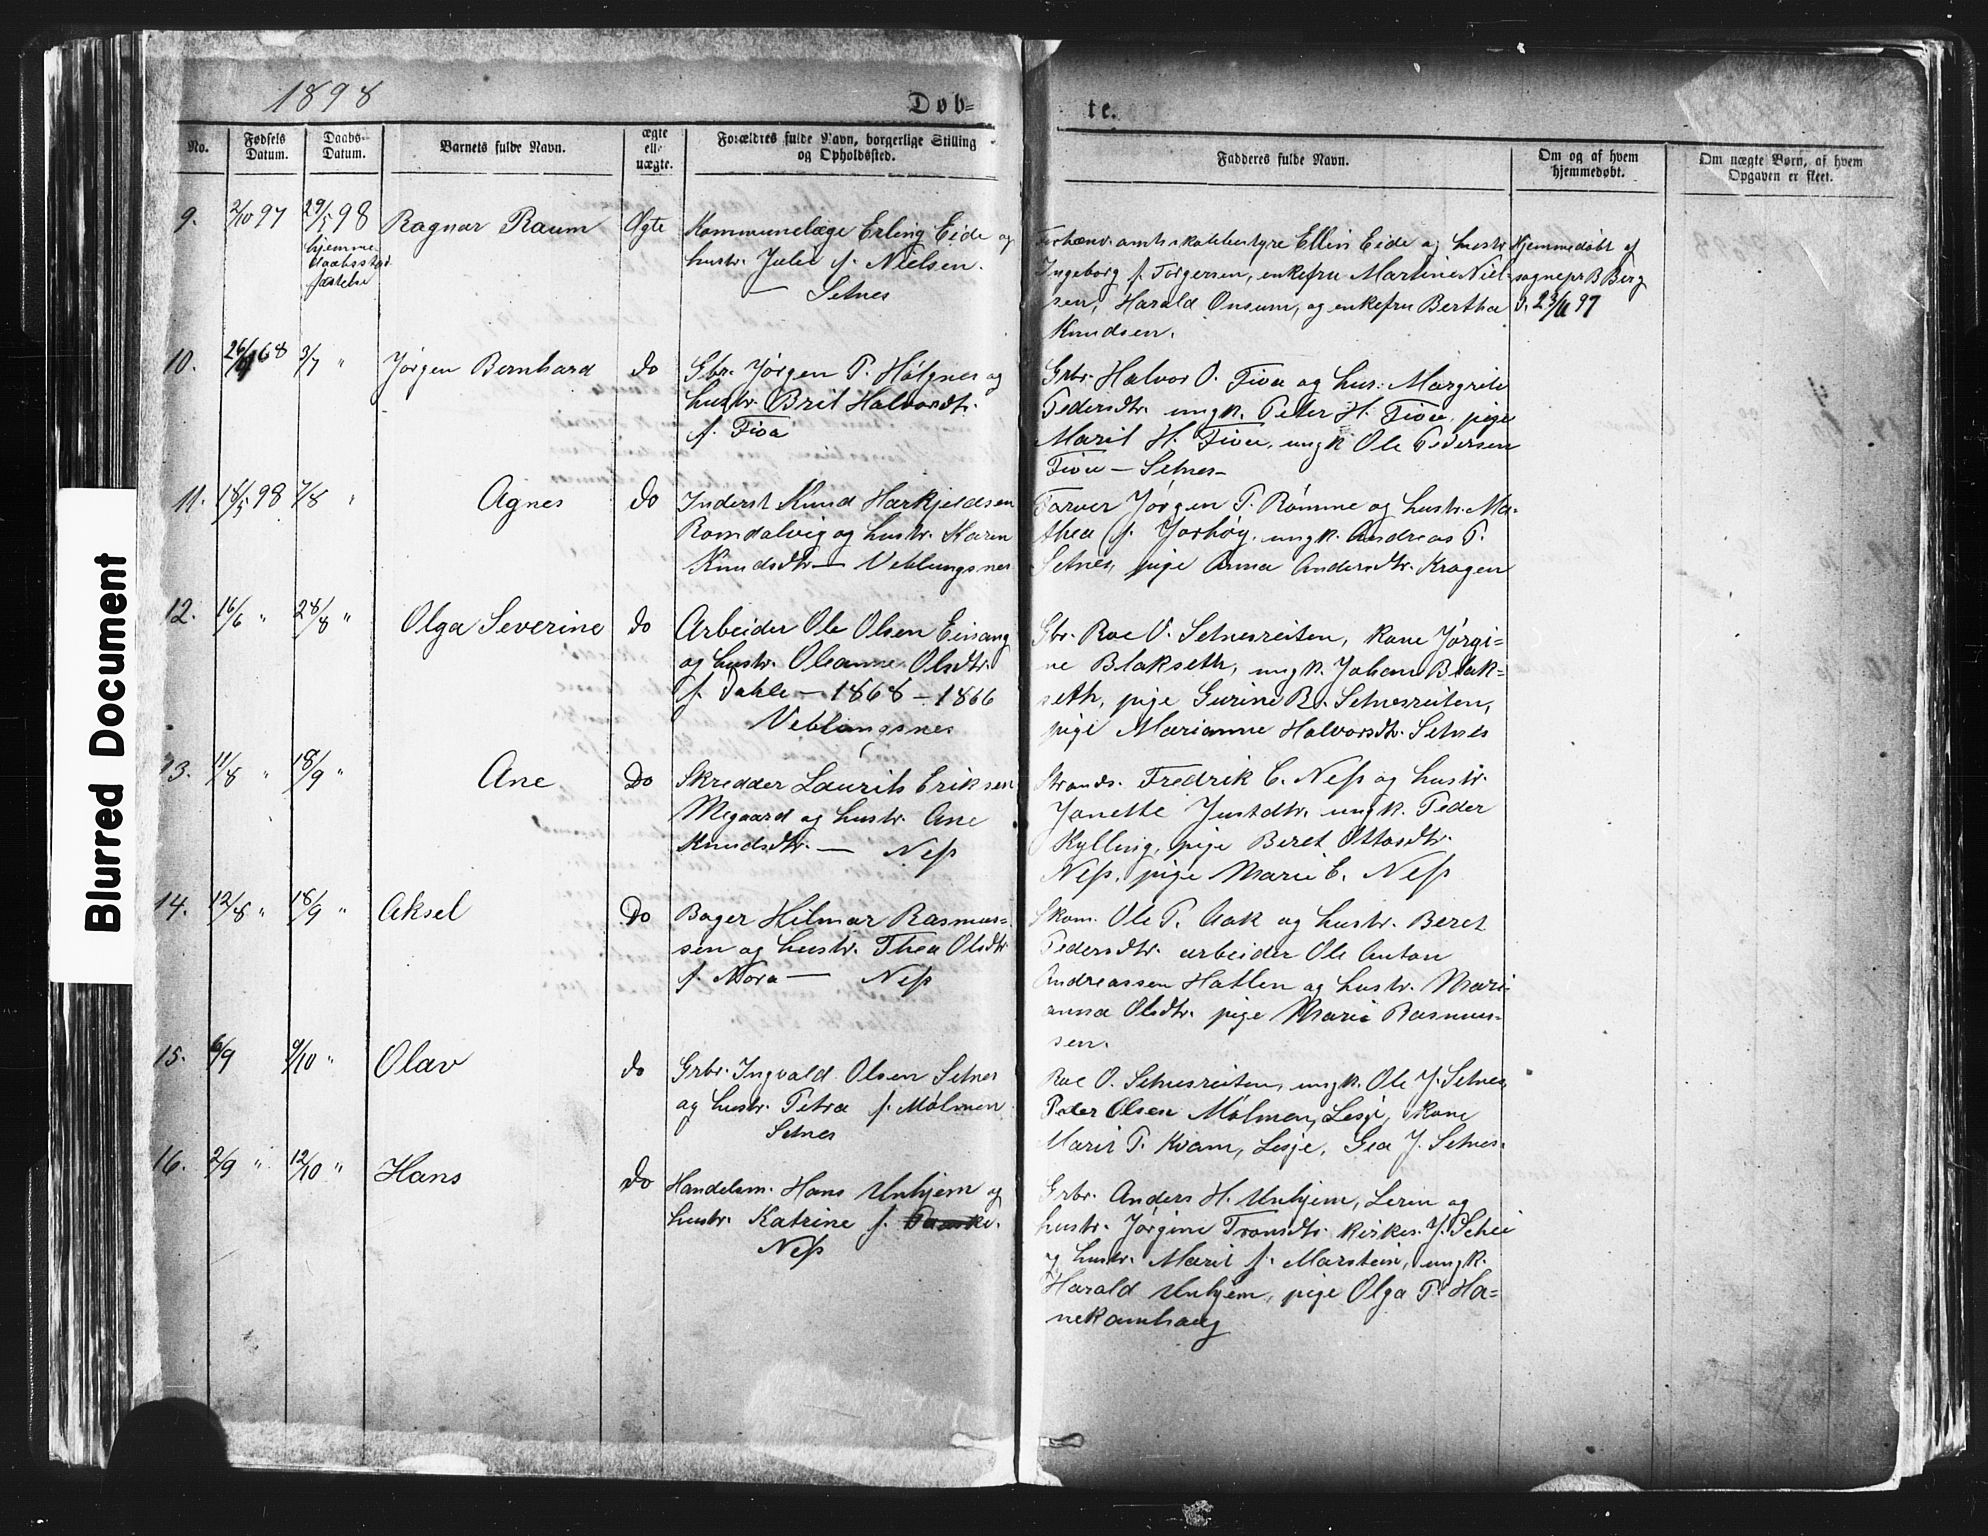 Blurred Document
1898
Døb=
te.
No.
Fødsels Datum.
Daabs- Datum.
Barnets fulde Navn.
ægte ell. uægte.
Forældres fulde Navn, borgerlige Stilling og Opholdssted.
Fadderes fulde Navn.
Om og af hvem hjemmedøbt.
Om uægte Børn, af hvem Opgaven er skeet.
9. 2/10 97 29/5 98 Ragnar Raum Ægte
hjemme
Kommunelæge Erling Eide og
hustr. Julie f. Nielsen.
— Setnes
amtsskolebestyre Ellin Eide og hustr.
Ingeborg f. Torgersen, enkefru Martine Niel-
sen, Harald Onsum, og enkefru Bertha
Knudsen.
Hjemmedøbt af
sognepr. B. Berg
d. 23/11 97
10. 3/7 " Jørgen Bernhard do
Gbr. Jørgen P. Hølgnes og
hustr. Brit Halvorsdtr.
f. Fiva
Grbr. Halvor O. Fiva og hus: Margrete
Pedersdtr. ungk. Peter H. Fiva, pige
Marit H. Fiva, ungk Ole Pedersen
Fiva — Setnes
11. 18/5 98 7/8 " Agnes do
Inderst Knud Harkjeldsen
Romdalvig og hustr. Karen
Knudsdtr — Veblungsnes
Farver Jørgen P. Rømme og hustr. Ma-
thea f. Jorhøy, ungk. Andreas P.
Setnes, pige Anna Andersdtr. Kragen
12. 16/6 " 28/8 " Olga Severine do
Arbeider Ole Olsen Einang
og hustr. Oleanne Olsdtr.
f. Dahle — 1868 – 1866
Veblungsnes
Gbr. Roe O. Setnesreiten, kone Jørgi-
ne Blakseth, ungk. Johan Blak-
seth, pige Gurine R. Setnesreiten,
pige Marianne Halvorsdtr. Setnes
13. 11/8 " 18/9 " Ane Do
Skredder Laurits Eriksen
Megaard og hustr. Ane
Knudsdtr. — Neß
Strands. Fredrik E. Neß og hustr.
Janette Justdtr. ungk. Peder
Kylling, pige Beret Ottosdtr.
Neß, pige Marie E. Neß
14. 12/8 " 18/9 " Aksel Do
Bager Hilmar Rasmus=
sen og hustr. Thea Olsdtr
f. Mora — Neß
Skom. Ole P. Aak og hustr. Beret
Pedersdtr. arbeider Ole Anton
Andreassen Hatlen og hustr. Mari-
anna Olsdtr. pige Marie Rasmus-
sen.
15. 6/9 9/10 " Olav do
Grbr. Ingvald Olsen Setnes
og hustr. Petra f. Mølmen
Setnes
Roe O. Setnesreiten, ungk. Ole J. Setnes,
Peder Olsen Mølmen, Lesje, kone
Marit P. Kvam, Lesje, Gea J. Setnes.
16. 2/9 " 12/10 " Hans do
Handelsm. Hans Unhjem og
hustr. Katrine f.
Neß
Grbr. Anders H. Unhjem, Leren og
hustr. Jørgine Tronsdtr. kirkes. J. Setei
og hustr. Marit f. Marstein, ungk.
Harald Unhjem, pige Olga P. Ha=
nekamhaug